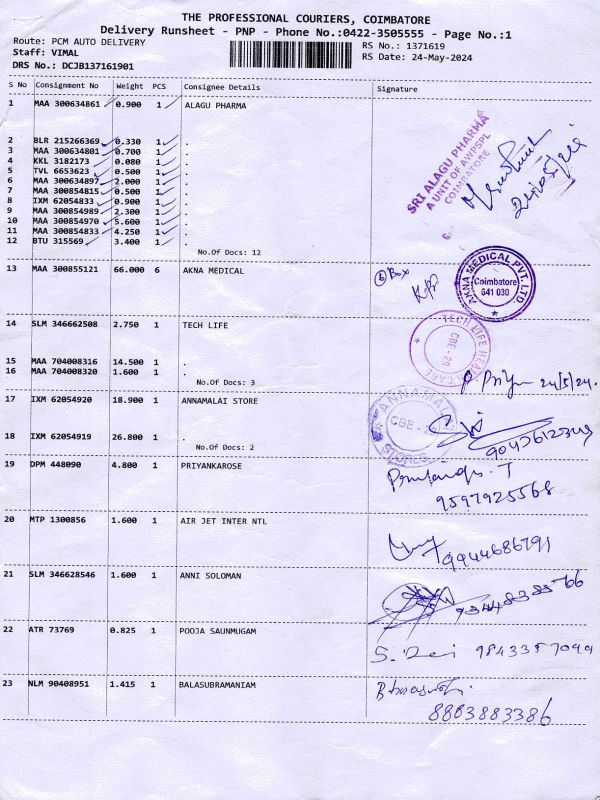 THE PROFESSIONAL COURIERS, COIMBATORE
Delivery Runsheet - PNP - Phone No.:0422-3505555 - Page No.:1
Route: PCM AUTO DELIVERY RS No.: 1371619
Staff: VIMAL RS Date: 24-May-2024
DRS No.: DCJB137161901
S No Consignment No Weight PCS Consignee Details Signature
1 MAA 300634861 0.900 1 ALAGU PHARMA
SRI ALAGU PHARMA
A UNIT OF AWPSPL
COIMBATORE
2 BLR 215266369 0.330 1 .
3 MAA 300634801 0.700 1 .
4 KKL 3182173 0.080 1 .
5 TVL 6653623 0.500 1 .
6 MAA 300634897 2.000 1 .
7 MAA 300854815 0.500 1 .
8 IXM 62054833 0.900 1 .
9 MAA 300854989 2.300 1 .
10 MAA 300854970 5.600 1 .
11 MAA 300854833 4.250 1 .
12 BTU 315569 3.400 1 .
No.Of Docs: 12
13 MAA 300855121 66.000 6 AKNA MEDICAL
6 Box
AKNA MEDICAL PVT. LTD.
Coimbatore
641 030
14 SLM 346662508 2.750 1 TECH LIFE
TECH LIFE HEALTH CARE
CBE-29
15 MAA 704008316 14.500 1 .
16 MAA 704008320 1.600 1 .
No.Of Docs: 3
24/5/24.
17 IXM 62054920 18.900 1 ANNAMALAI STORE
STORES
18 IXM 62054919 26.800 1 .
No.Of Docs: 2
19 DPM 448090 4.800 1 PRIYANKAROSE
9597925568
20 MTP 1300856 1.600 1 AIR JET INTER NTL
9944686791
21 SLM 346628546 1.600 1 ANNI SOLOMAN
22 ATR 73769 0.825 1 POOJA SAUNMUGAM
23 NLM 90408951 1.415 1 BALASUBRAMANIAM
8803883386